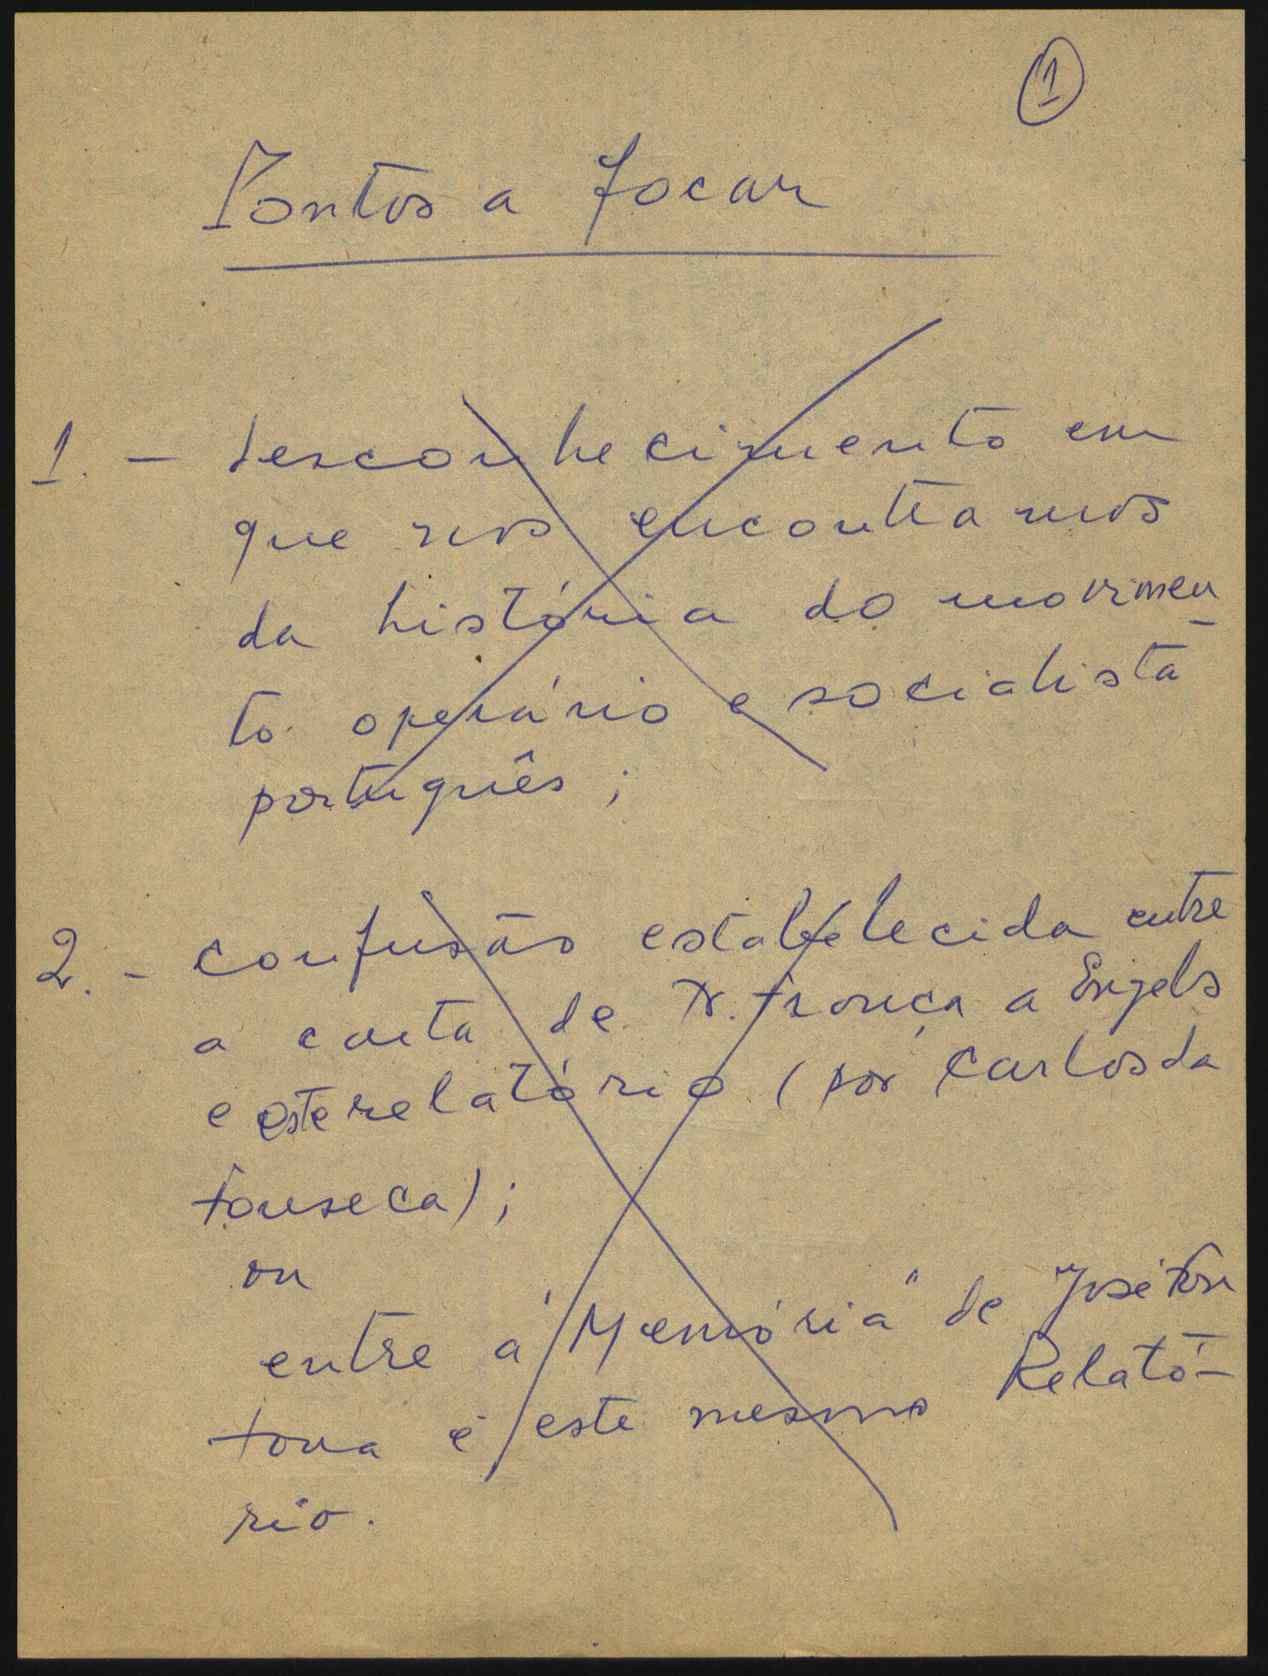 ①
Pontos a focar
1. - desconhecimento em
que nos encontramos
da história do movimen-
to operário e socialista
português;
2. - confusão estabelecida entre
a carta de N. França a Engels
e este relatório (por Carlos da
Fonseca);
ou
entre a "Memória" de José Fon
tana e este mesmo Relató-
rio.